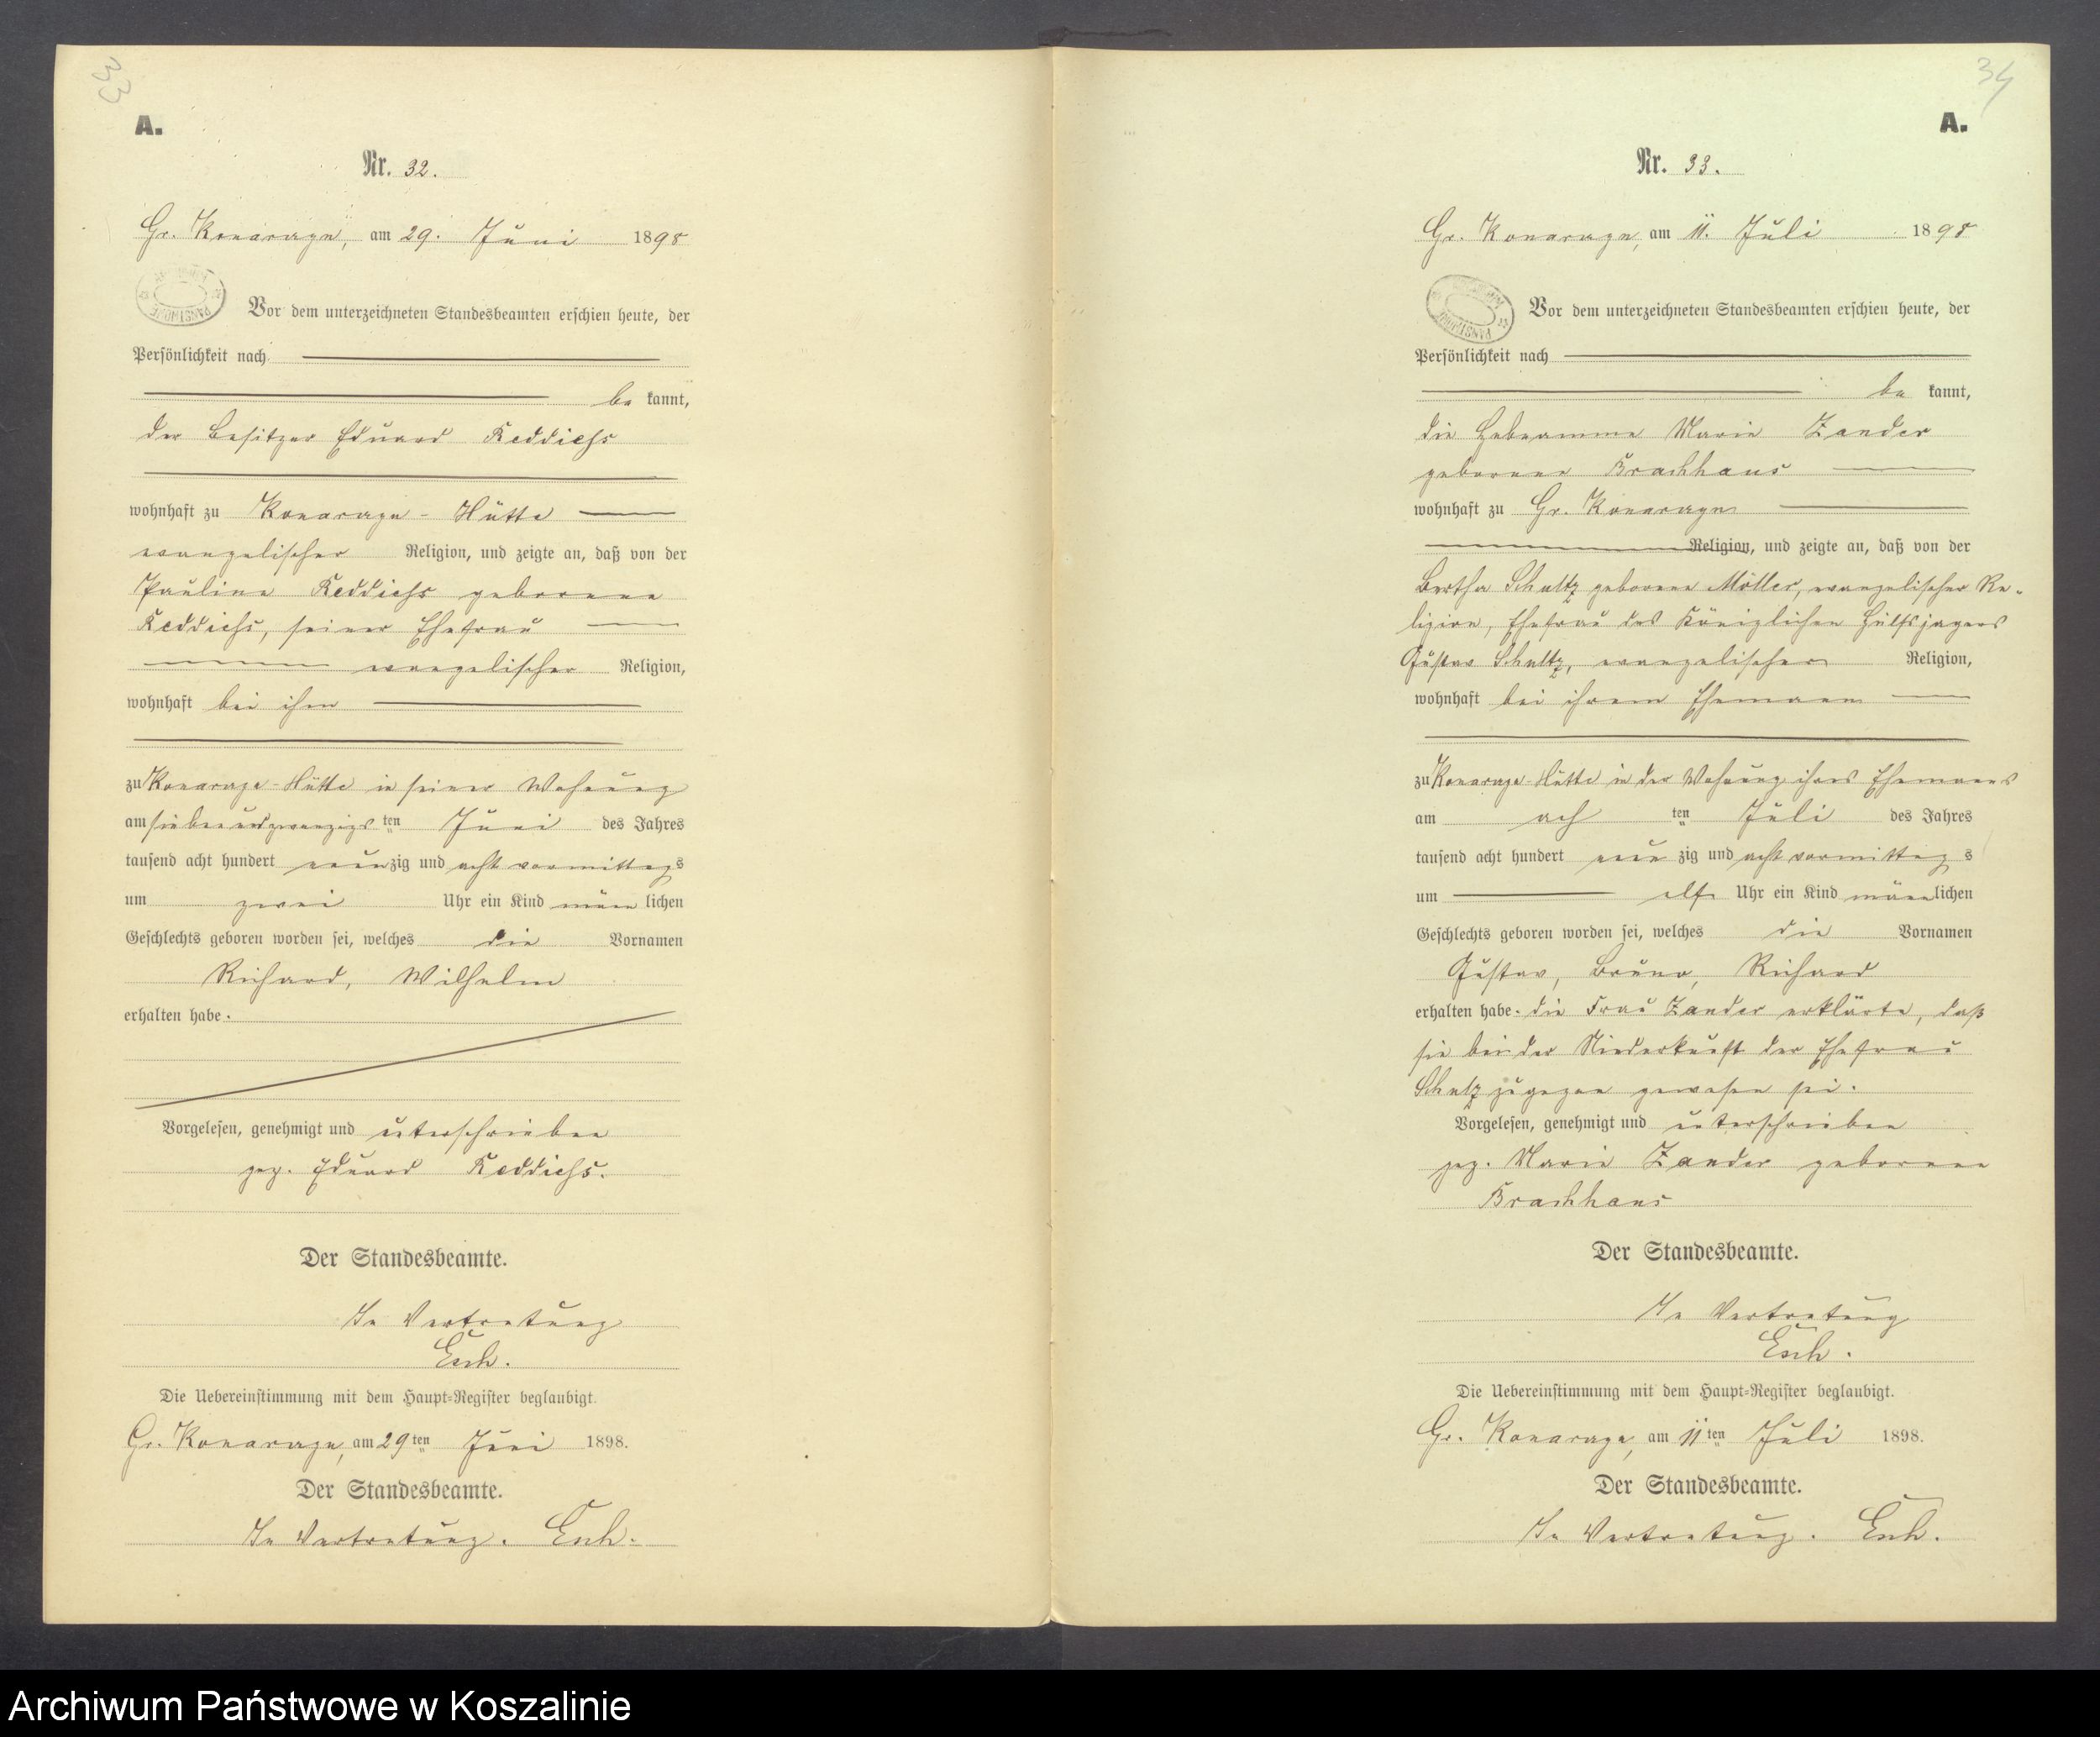 33
A.
Nr. 32.
Gr. Konarczyn, am 29. Juni 1898
Vor dem unterzeichneten Standesbeamten erschien heute, der
Persönlichkeit nach
be kannt,
der Besitzer Eduard Reddichs
wohnhaft zu Konarczyn-Hütte
evangelischer Religion, und zeigte an, daß von der
Pauline Reddichs geborene
Reddichs, seiner Ehefrau
evangelischer Religion,
wohnhaft bei ihm
zu Konarczyn-Hütte in seiner Wohnung
am siebenundzwanzigs ten Juni des Jahres
tausend acht hundert neunzig und acht vormittags
um zwei Uhr ein Kind männ lichen
Geschlechts geboren worden sei, welches die Vornamen
Richard, Wilhelm
erhalten habe.
Vorgelesen, genehmigt und unterschrieben
gez. Eduard Reddichs.
Der Standesbeamte.
In Vertretung
Esch.
Die Uebereinstimmung mit dem Haupt-Register beglaubigt.
Gr. Konarczyn, am 29 ten Juni 1898.
Der Standesbeamte.
In Vertretung. Esch.
34
A.
Nr. 33.
Gr. Konarczyn, am 11. Juli 1898
Vor dem unterzeichneten Standesbeamten erschien heute, der
Persönlichkeit nach
be kannt,
die Hebeamme Marie Zander
geborene Brackhaus
wohnhaft zu Gr. Konarczyn
Religion, und zeigte an, daß von der
Bertha Schultz geborene Möller, evangelischer Re-
ligion, Ehefrau des Königlichen Hülfsjägers
Gustav Schultz, evangelischer Religion,
wohnhaft bei ihrem Ehemann
zu Konarczyn-Hütte in der Wohnung ihres Ehemanns
am ach ten Juli des Jahres
tausend acht hundert neun zig und acht vormittag s
um elf Uhr ein Kind männlichen
Geschlechts geboren worden sei, welches die Vornamen
Gustav, Bruno, Richard
erhalten habe. die Frau Zander erklärte, daß
sie bei der Niederkunft der Ehefrau
Schulz zugegen gewesen sei.
Vorgelesen, genehmigt und unterschrieben
gez. Marie Zander geborene
Brackhaus
Der Standesbeamte.
In Vertretung
Esch.
Die Uebereinstimmung mit dem Haupt-Register beglaubigt.
Gr. Konarczyn, am 11 ten Juli 1898.
Der Standesbeamte.
In Vertretung. Esch.
Archiwum Państwowe w Koszalinie